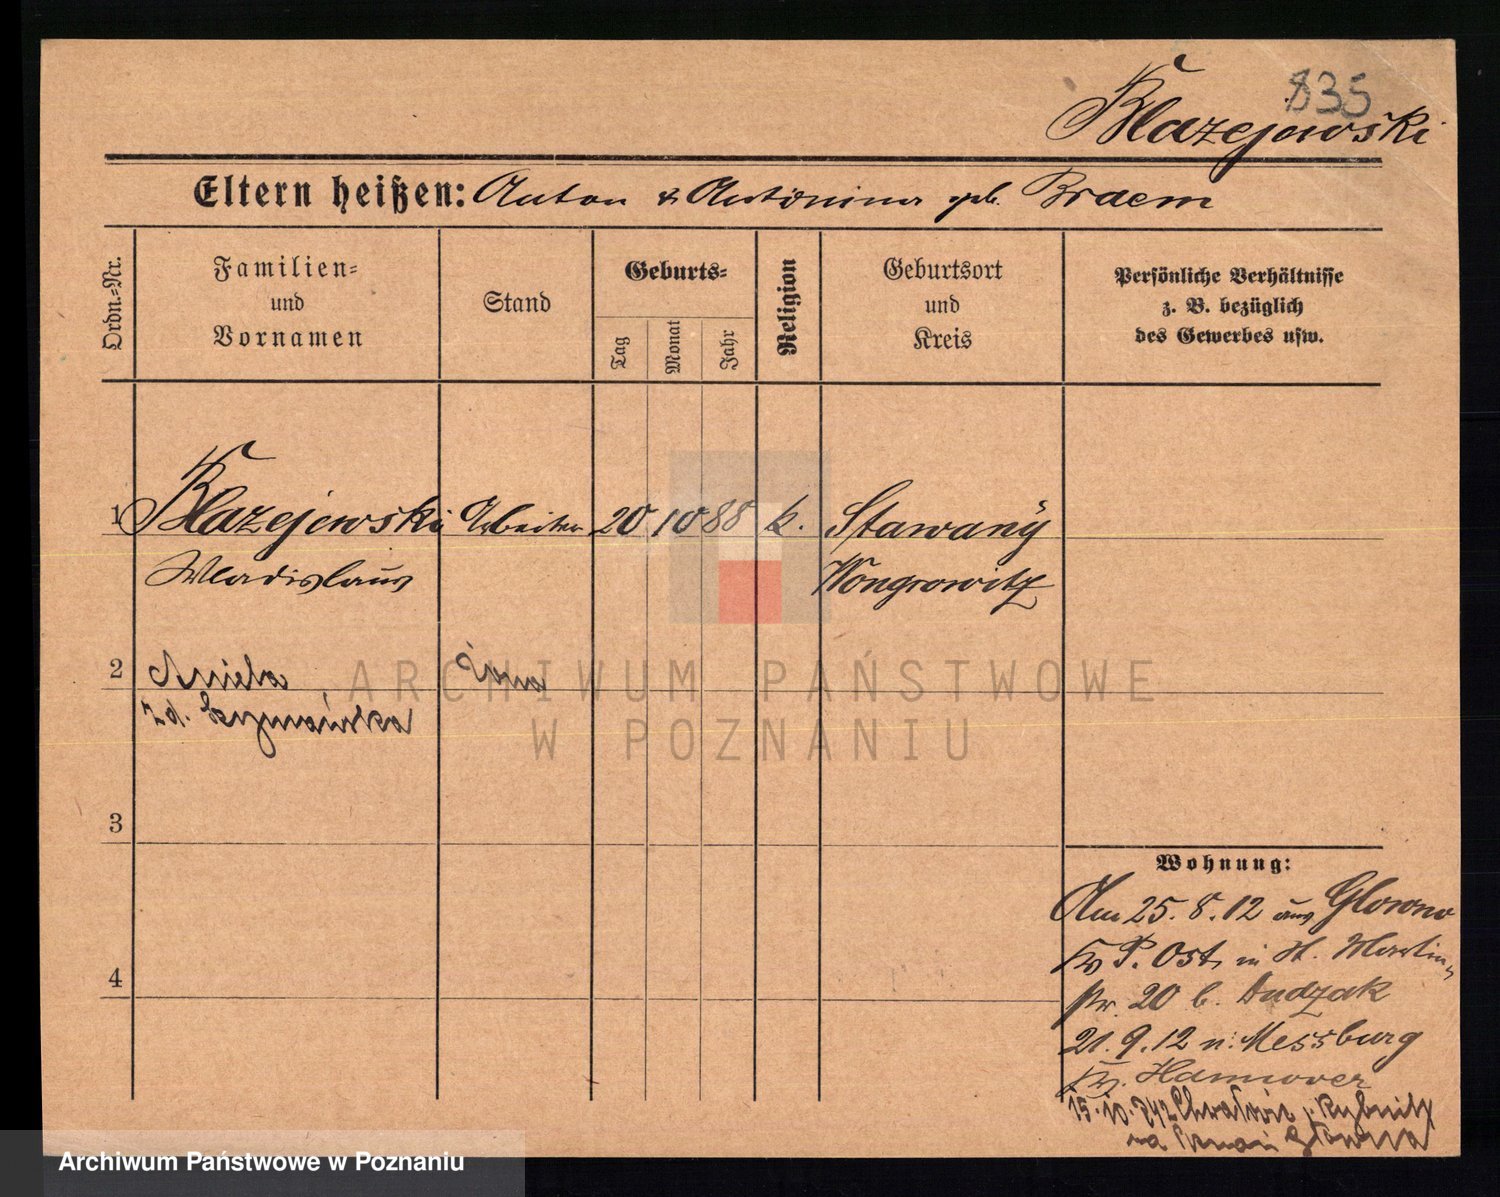 835
Blazejowski
Eltern heißen: Anton & Antonina geb. Braem
Ordn.=Nr.
Familien=
und
Vornamen
Stand
Geburts=
Tag
Monat
Jahr
Religion
Geburtsort
und
Kreis
Persönliche Verhältnisse
z. B. bezüglich
des Gewerbes usw.
1 Blazejowski Arbeiter 20 10 88 k. Stawany
Wladislaus Wongrowitz
2 Aniela żona
z d. Szymańska
3
4
Wohnung:
Am 25.8.12 aus Glowno
Kr P. Ost, in St. Martin-
str. 20 b. Dudzak
21.9.12 n. Messburg
Kr. Hannover
15.10. Rybnik
na Główna
ARCHIWUM PAŃSTWOWE
W POZNANIU
Archiwum Państwowe w Poznaniu